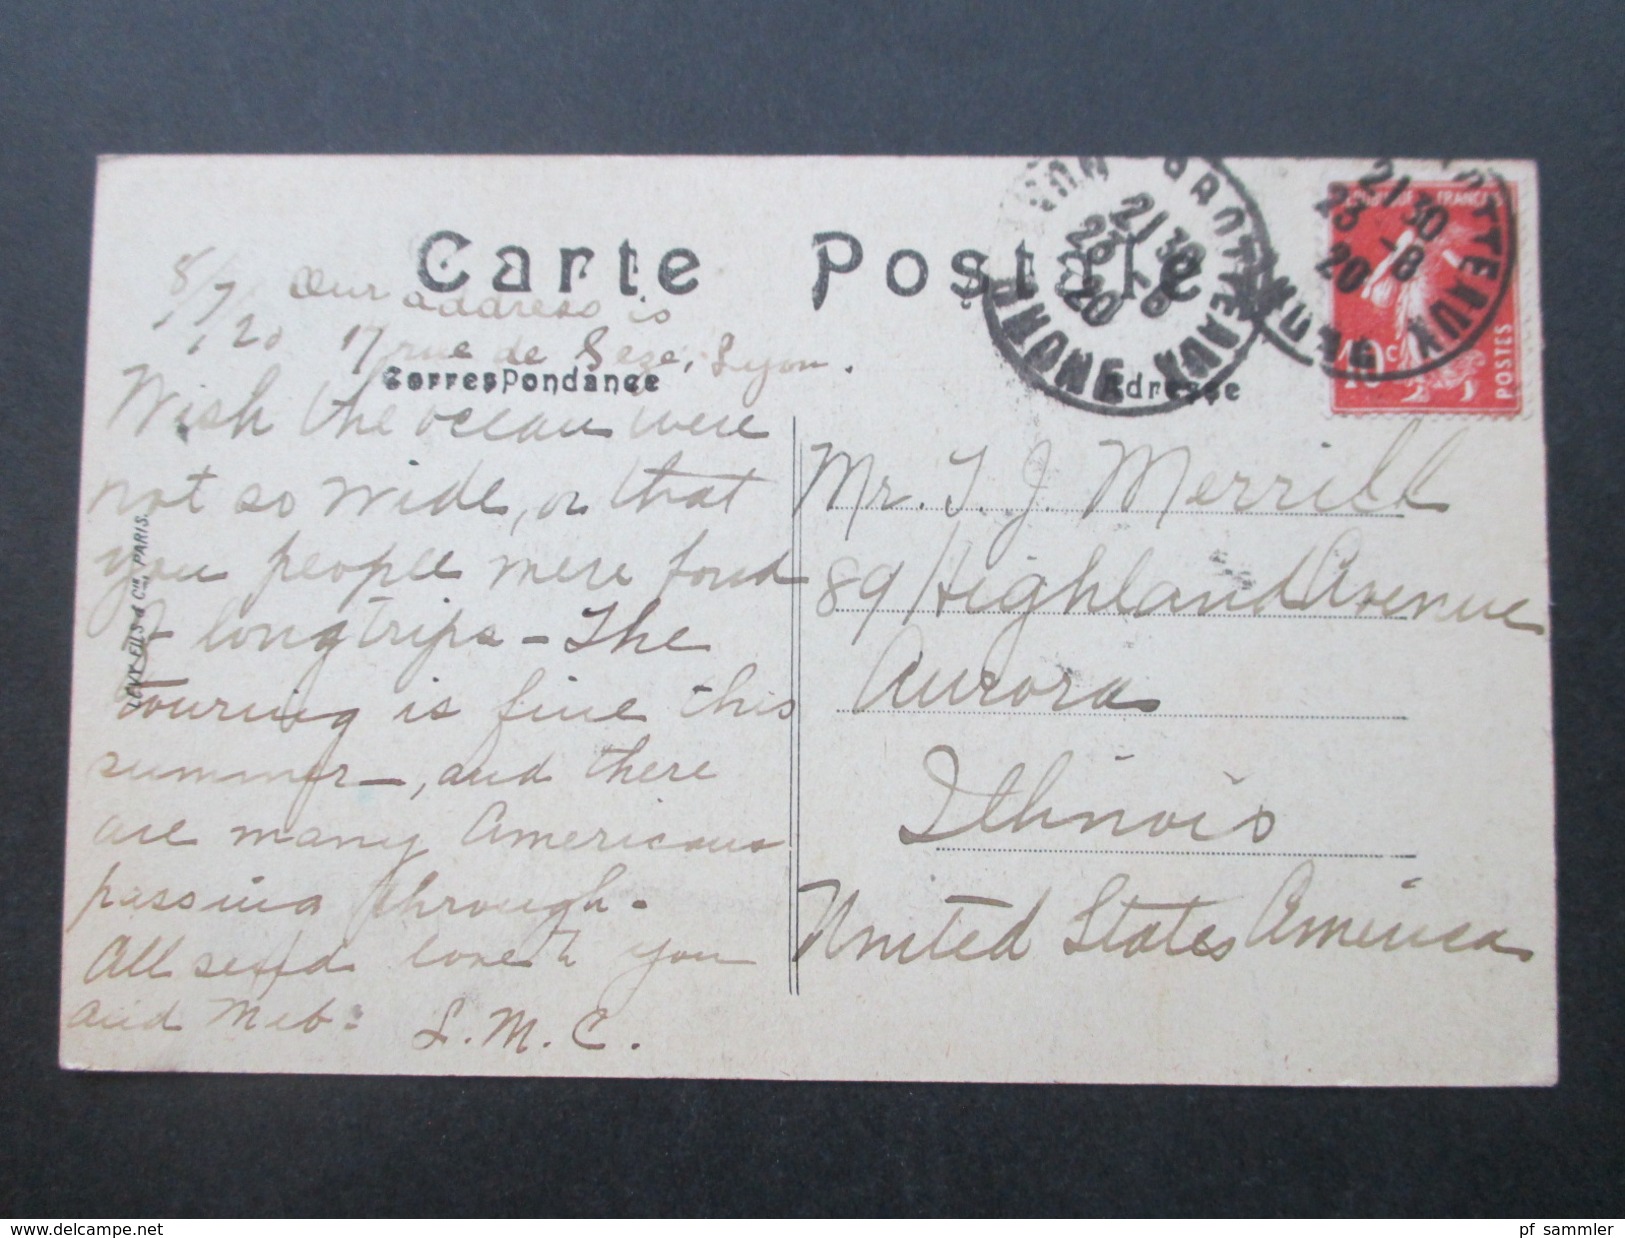 Carte Postale
8/7/20 Our address is
17 rue de Seze, Lyon.
Correspondance
Adresse
Wish the ocean were
not so wide, or that
you people were fond
of long trips - The
touring is fine this
summer -, and there
are many Americans
passing through -
All send love to you
and Meb -
L.M.C.
LEVY FILS & Cie, PARIS.
Mr. T. J. Merrill
89 Highland Avenue
Aurora
Illinois
United States America
BROTTEAUX
RHONE
21 30
23 -8
20
BROTTEAUX
RHONE
21 30
23 -8
20
10c
POSTES
www.delcampe.net
pf_sammler